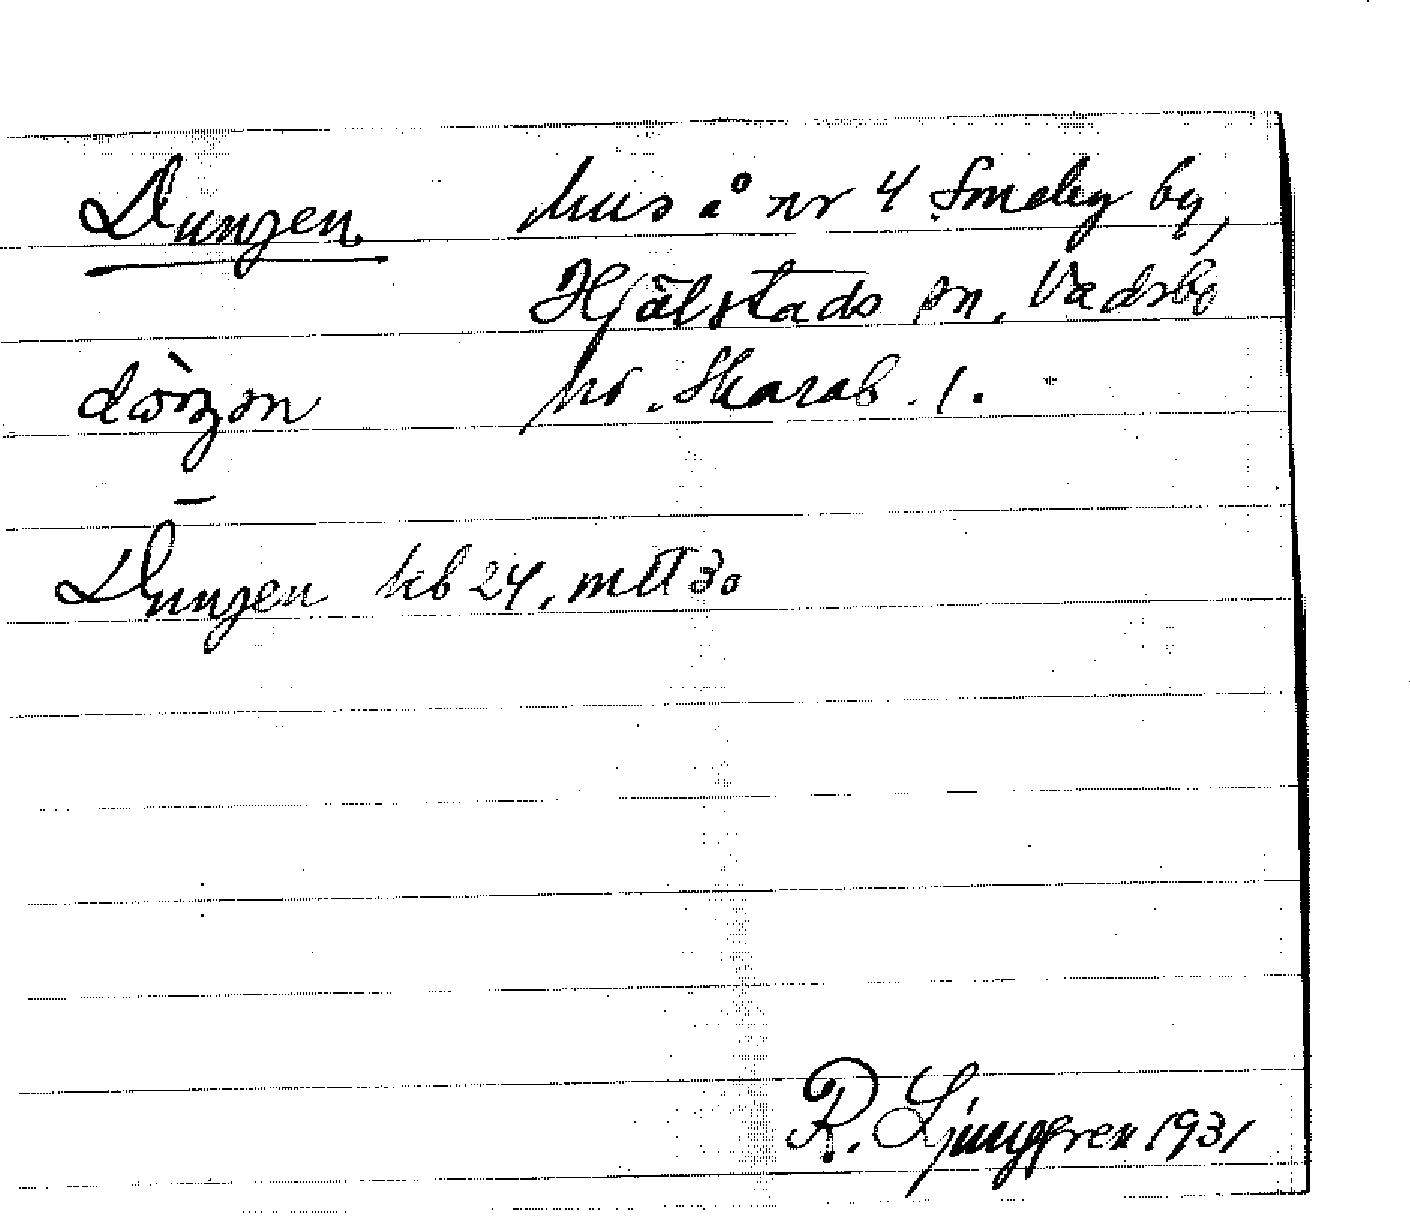 Dungen hus å nr 4 Smeby by,
Hjälstads sn, Vadsbo
hd. Skarab. l.
Dungen kb 24, mtl 30
R. Ljunggren 1931